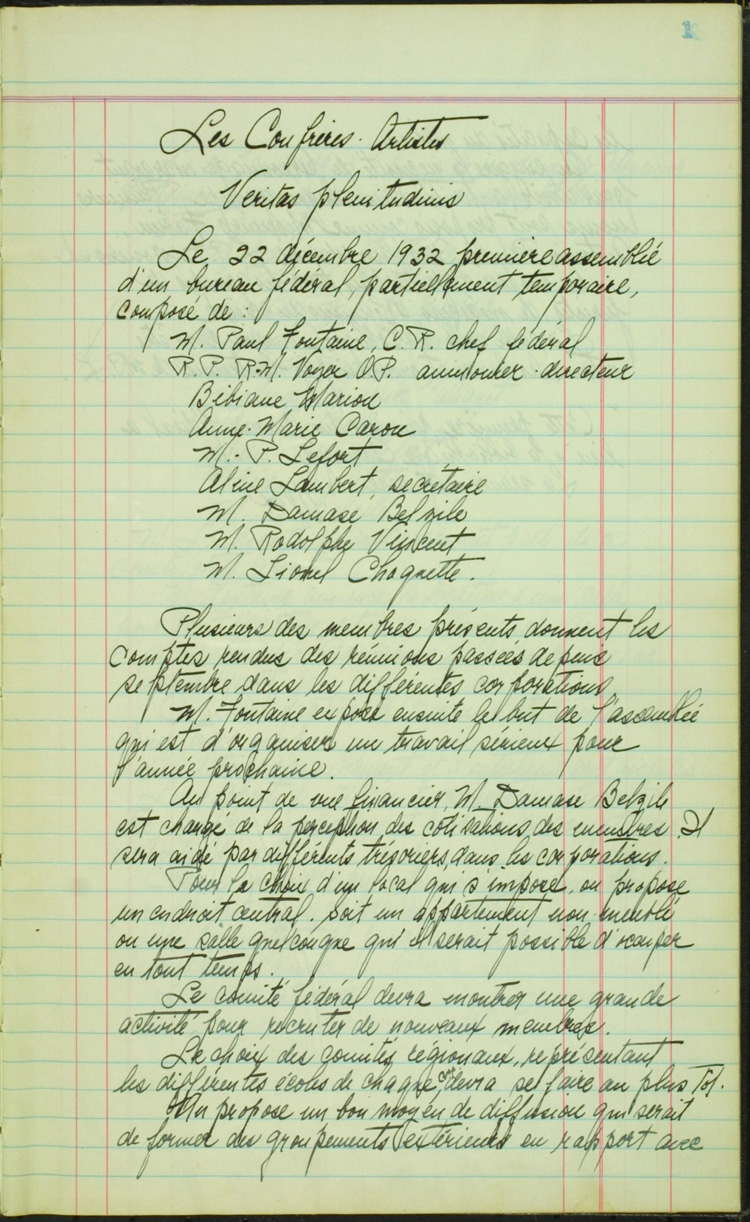 1
Les Confrères-Artistes
Veritas plenitudinis
Le 22 décembre 1932 première assemblée
d'un bureau fédéral, partiellement temporaire,
composé de :
M. Paul Fontaine, C.R. chef fédéral
R.P. R-M. Voyer O.P. aumônier-directeur
Bibiane Marion
Anne-Marie Caron
M.-P. Lefort
Aline Lambert, secrétaire
M. Damase Belzile
M. Rodolphe Vincent
M. Lionel Choquette.
Plusieurs des membres présents, donnent les
comptes rendus des réunions passées depuis
septembre dans les différentes corporations.
M. Fontaine expose ensuite le but de l'assemblée
qui est d'organiser un travail sérieux pour
l'année prochaine.
Au point de vue financier, M. Damase Belzile
est chargé de la perception, des cotisations, des membres. Il
sera aidé par différents trésoriers, dans les corporations.
Pour le choix d'un local qui s'impose, on propose
un endroit central. Soit un appartement non meublé
ou une salle quelconque qu'il serait possible d'occuper
en tout temps.
Le comité fédéral devra montrer une grande
activité pour recruter de nouveaux membres.
Le choix des comités régionaux, représentant
les différentes écoles de chaque devra se faire au plus Tôt.
Un propose un bon moyen de diffusion qui serait
de former des groupements extérieurs en rapport avec